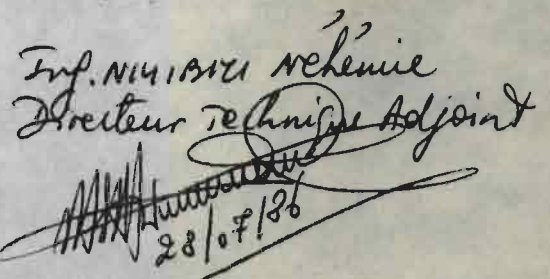 Ing. NIYIBIZI Néhémie
Directeur Technique Adjoint
28/07/86